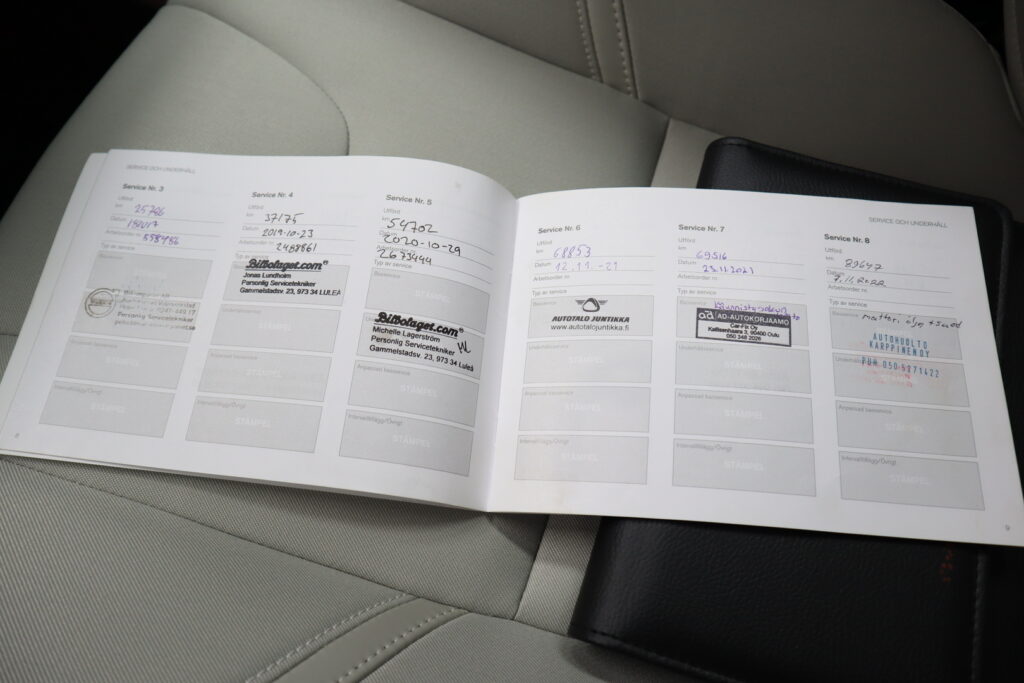 SERVICE OCH UNDERHÅLL
Service Nr. 3
Utförd
km 25786
Datum
Arbetsorder nr 558486
Typ av service
Personlig Servicetekniker
8
Service Nr. 4
Utförd
km 37175
Datum 2019-10-23
Arbetsorder nr 2488861
Typ av service
BilBolaget.com®
Jonas Lundholm
Personlig Servicetekniker
Gammelstadsv. 23, 973 34 LULEÅ
STÄMPEL
STÄMPEL
Intervalltillägg/Övrigt
STÄMPEL
Service Nr. 5
Utförd
km 54702
Datum 2020-10-29
Arbetsorder nr 2673444
Typ av service
Basservice
STÄMPEL
BilBolaget.com®
Michelle Lagerström
Personlig Servicetekniker
Gammelstadsv. 23, 973 34 Luleå
Anpassad basservice
STÄMPEL
Intervalltillägg/Övrigt
STÄMPEL
SERVICE OCH UNDERHÅLL
Service Nr. 6
Utförd
km 68853
Datum 12.11.-21
Arbetsorder nr
Typ av service
AUTOTALO JUNTIKKA
www.autotalojuntikka.fi
Underhållsservice
STÄMPEL
Anpassad basservice
STÄMPEL
Intervalltillägg/Övrigt
STÄMPEL
Service Nr. 7
Utförd
km 69516
Datum 23.11.2021
Arbetsorder nr
Typ av service
Basservice
ad AD-AUTOKORJAAMO
Car-Fix Oy
90400 Oulu
050 348 2026
Underhållsservice
Anpassad basservice
STÄMPEL
Intervalltillägg/Övrigt
STÄMPEL
Service Nr. 8
Utförd
km 89647
Datum 7.11.2022
Arbetsorder nr
Typ av service
Basservice
AUTOHUOLTO
KARPPINEN OY
PUH 050-5271422
Anpassad basservice
STÄMPEL
Intervalltillägg/Övrigt
STÄMPEL
9